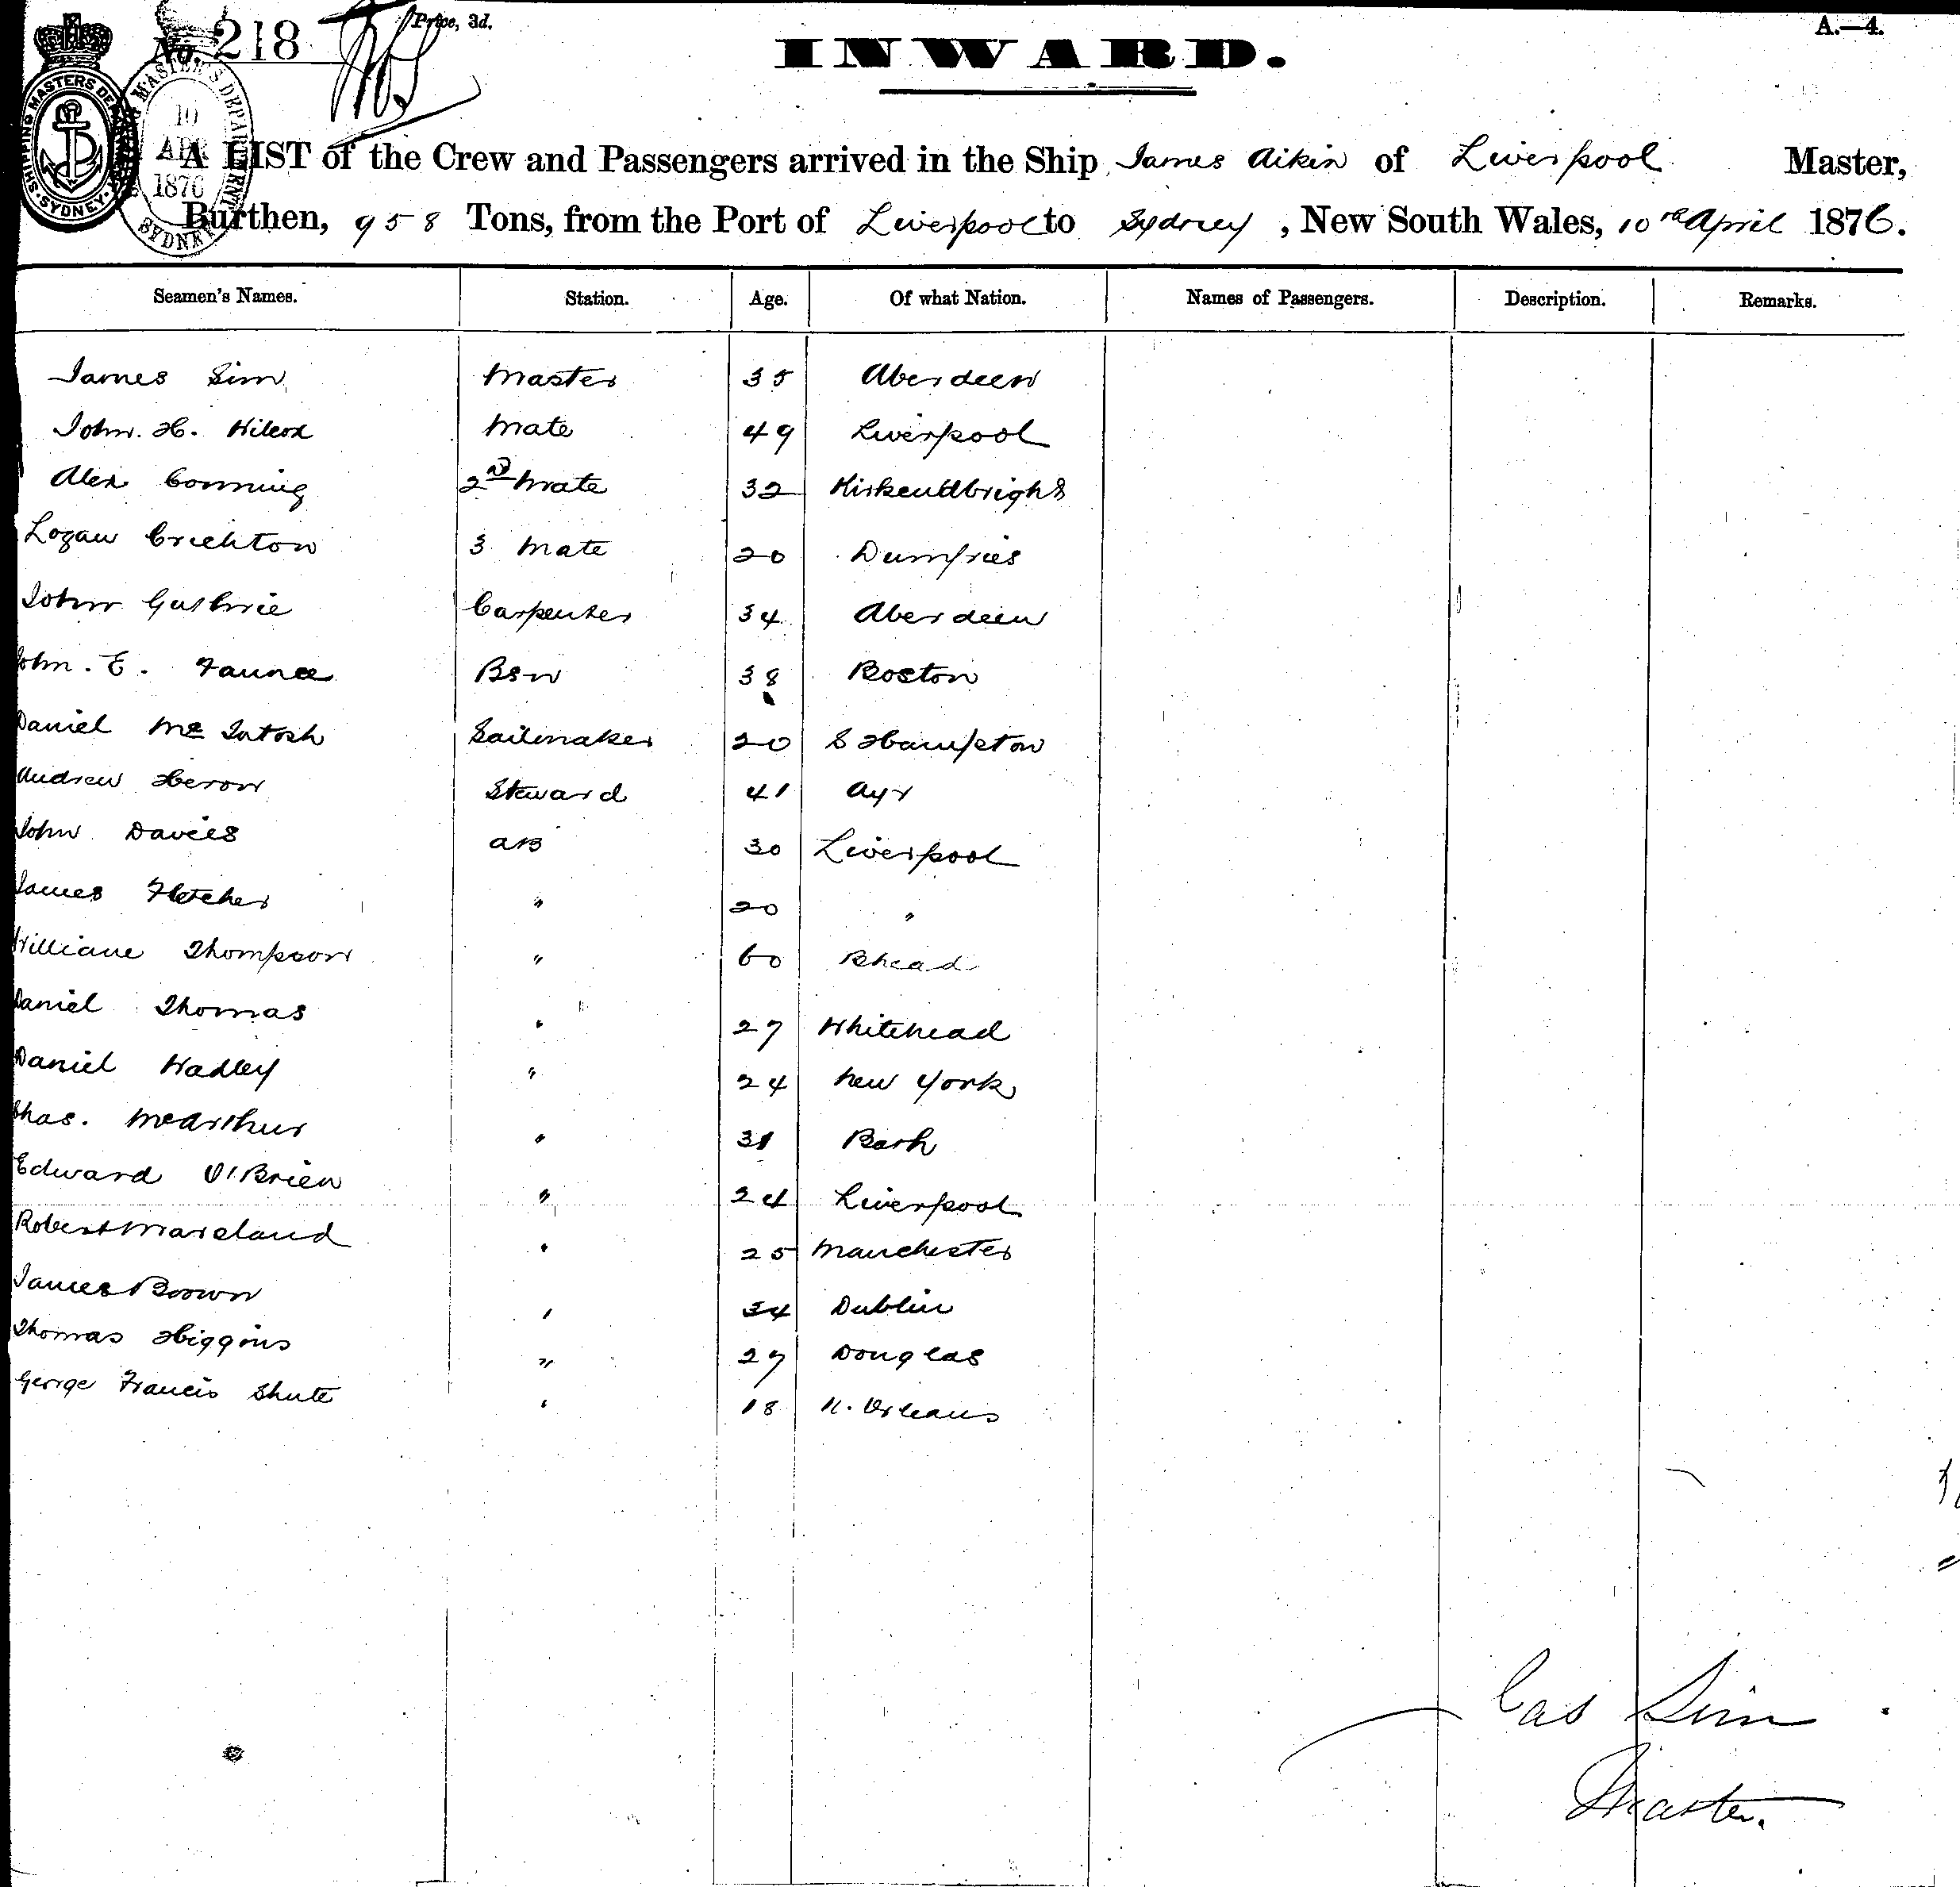 No. 218
Price, 3d.
A.—4.
INWARD.
SHIPPING MASTERS DEPARTMENT SYDNEY
SHIPPING MASTER'S DEPARTMENT SYDNEY
10 APR 1876
A LIST of the Crew and Passengers arrived in the Ship James Aikin of Liverpool Master,
Burthen, 958 Tons, from the Port of Liverpool to Sydney, New South Wales, 10th April 1876.
Seamen's Names. Station. Age. Of what Nation. Names of Passengers. Description. Remarks.
James Sim Master 35 Aberdeen
John. H. Wilcox Mate 49 Liverpool
Alex Conning 2nd Mate 32 Kirkcudbright
Logan Crichton 3 Mate 20 Dumfries
John Guthrie Carpenter 34 Aberdeen
John. E. Faunce Bsn 38 Boston
Daniel McIntosh Sailmaker 20 S Hampton
Andrew Heron Steward 41 Ayr
John Davies AB 30 Liverpool
James Fletcher " 20 "
William Thompson " 60 Bhead
Daniel Thomas " 27 Whitehead
Daniel Hadley " 24 New York
Chas. McArthur " 31 Bath
Edward O'Brien " 24 Liverpool
Robert Marsland " 25 Manchester
James Brown " 34 Dublin
Thomas Higgins " 27 Douglas
George Francis Shute " 18 N. Orleans
Jas Sim
Master.